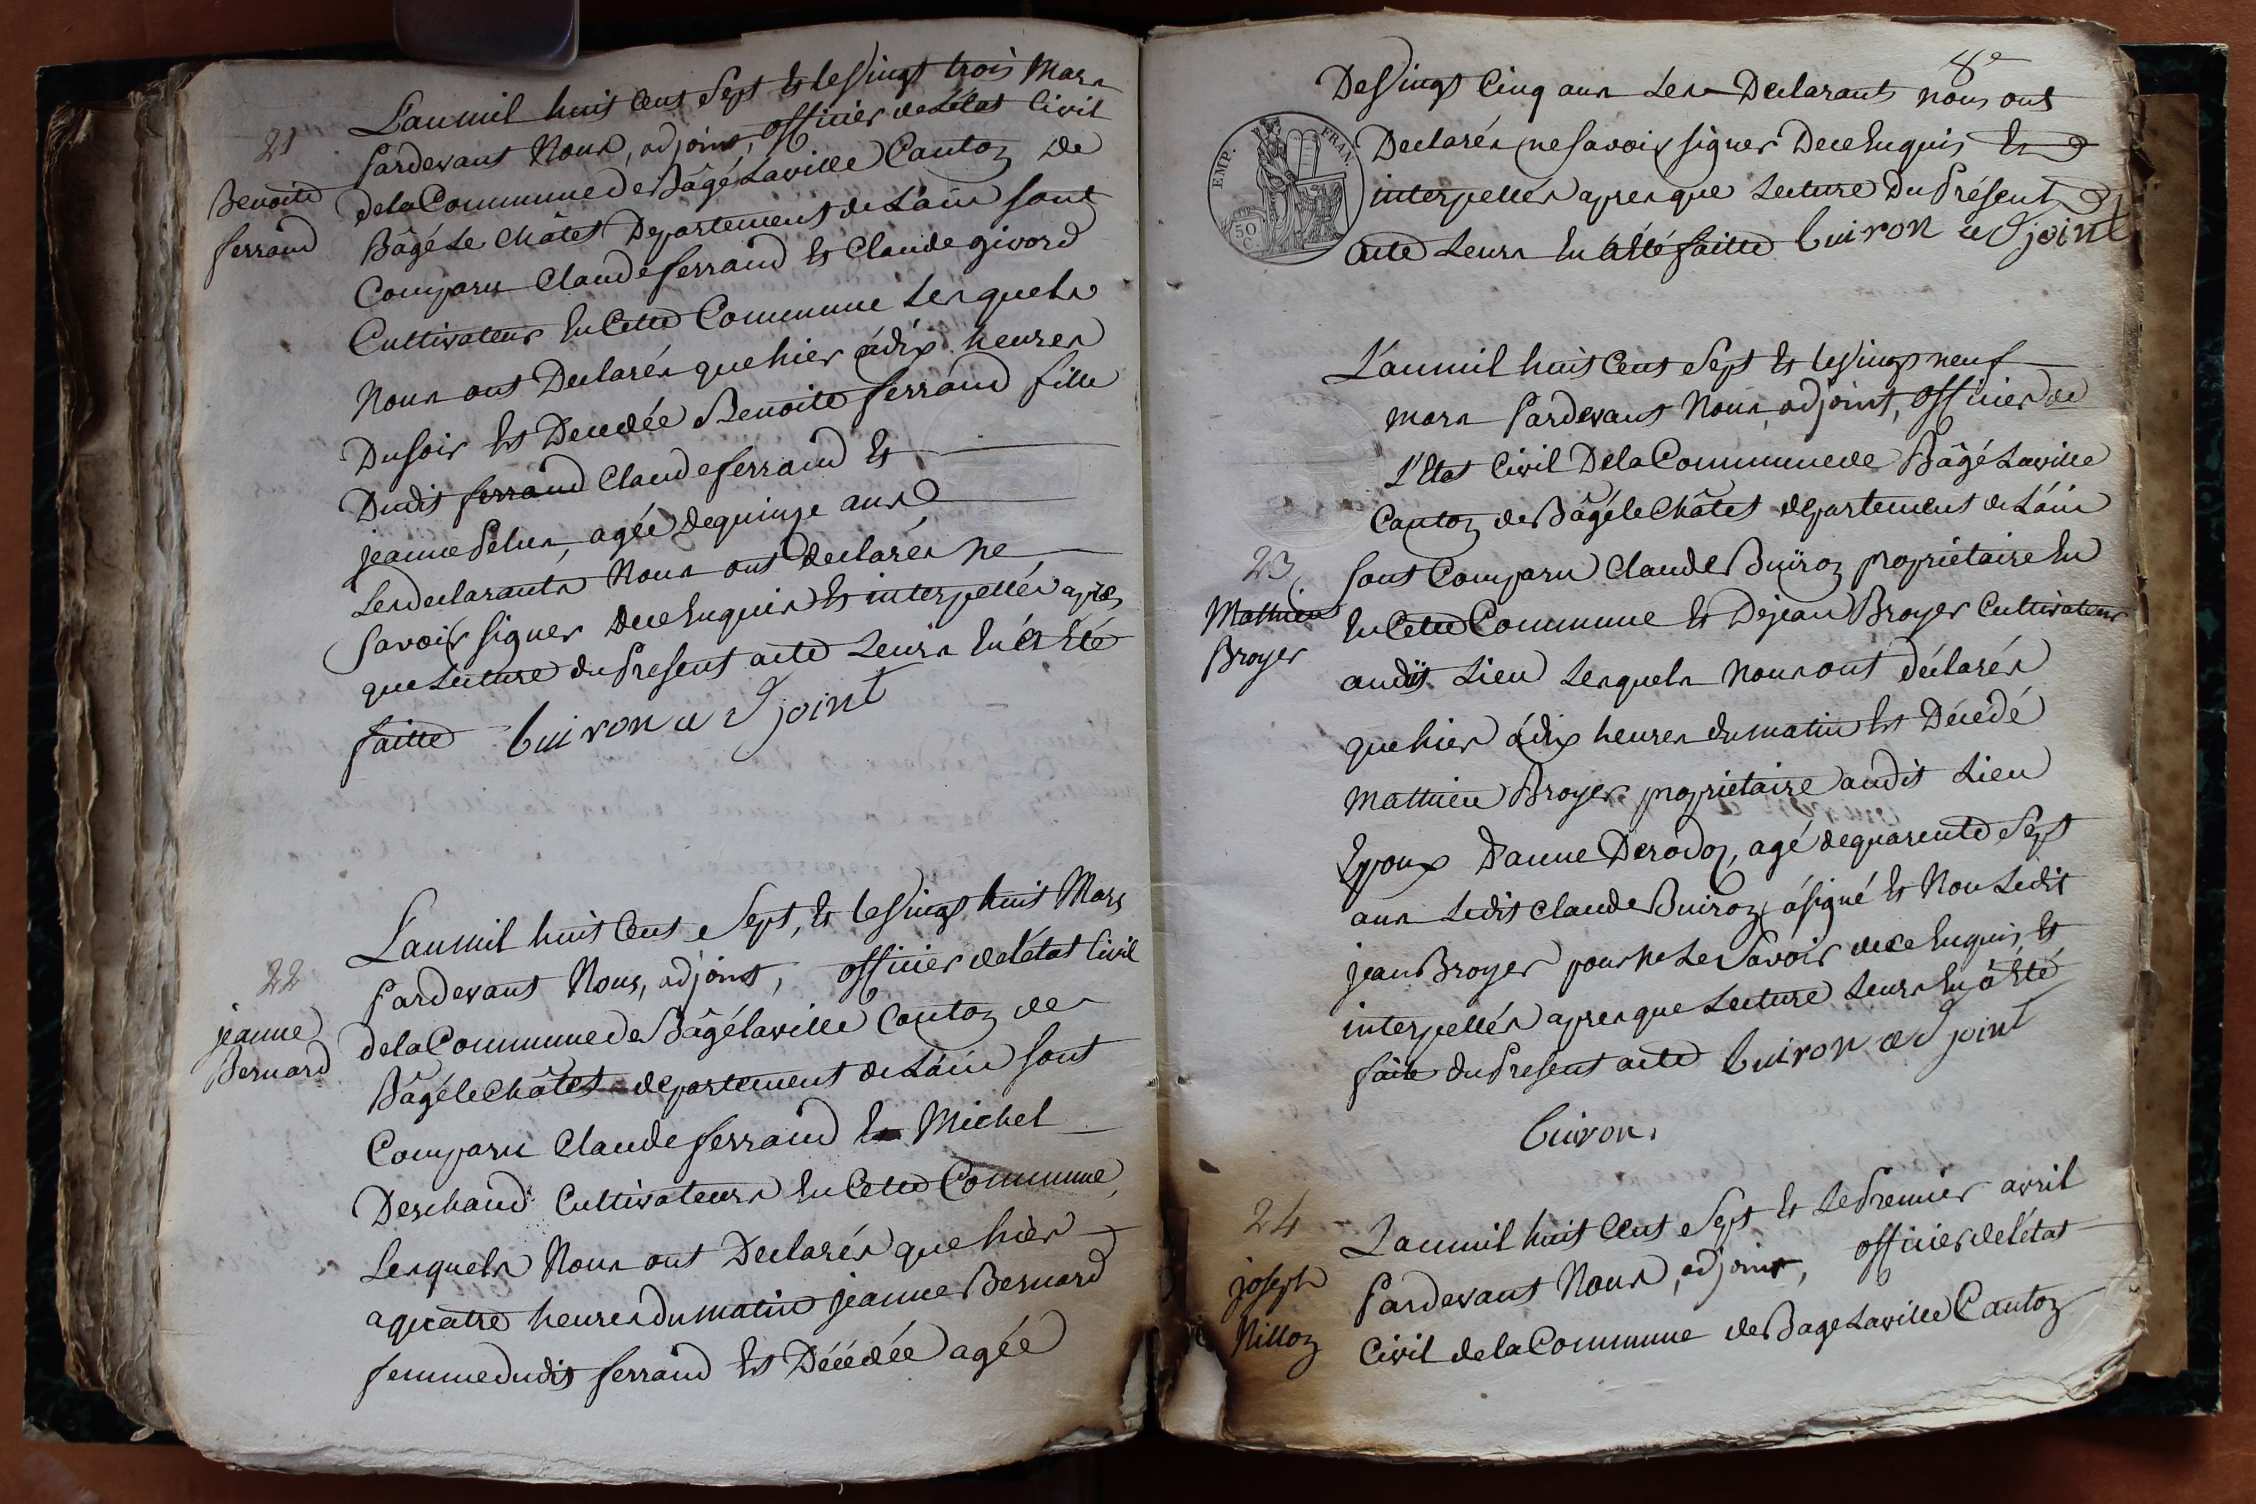 21
Benoite
ferrand
L'an mil huit Cent Sept Et le Vingt trois Mars
Pardevant Nous, adjoint, officier de L'état Civil
de la Commune de Bâgé Laville Canton de
Bâgé Le Châtel Departement de L'ain sont
Comparu Claude ferrand Et Claude givord
Cultivateur En Cette Commune Lesquels
Nous ont Declarés que hier à dix heures
Du soir Est Decedée Benoite ferrand fille
Dudit ferrand Claude ferrand Et
jeanne Pelus, agée de quinze ans
Les declarants Nous ont declarés ne
Savoir signer De ce Enquis Et interpellés après
que Lecture du Present acte Leurs En à Eté
faitte Buiron adjoint
22
jeanne
Bernard
L'an mil huit Cent Sept, Et le Vingt huit Mars
Pardevant Nous, adjoint, officier de l'état Civil
de la Commune de Bâgé laville Canton de
Bâgé le Châtel departement de L'ain sont
Comparu Claude ferrand Et Michel
Deschand Cultivateurs En Cette Commune,
Lesquels Nous ont Declarés que hier
a quatre heures du matin jeanne Bernard
femme dudit ferrand Est Décédée agée
8e
De Vingt Cinq ans Les Declarants nous ont
Declarés ne Savoir signer De ce Enquis Et
interpellés apres que Lecture Du Présent
acte Leurs En à Eté faitte Buiron adjoint
EMP. FRAN.
50
C.
23
Mathieu
Broyer
L'an mil huit Cent Sept Et le Vingt neuf
mars Pardevant Nous, adjoint, officier de
L'Etat Civil De la Commune de Bâgé Laville
Canton de Bâgé le Châtel departement de L'ain
sont Comparu Claude Buiron propriétaire En
En Cette Commune Et De jean Broyer Cultivateur
audit Lieu Lesquels Nous ont déclarés
que hier à dix heures du matin Est Décédé
Mathieu Broyer propriétaire audit Lieu
Epoux D'anne Derodon, agé de quarente Sept
ans Ledit Claude Buiron à signé Et Non Ledit
jean Broyer pour ne Le Savoir de ce Enquis Et
interpellés apres que Lecture Leurs En à Eté
faite du Present acte Buiron adjoint
Buiron.
24
joseph
Nillon
L'an mil huit Cent Sept Et Le Premier avril
Pardevant Nous, adjoint, officier de l'état
Civil de la Commune de Bage Laville Canton